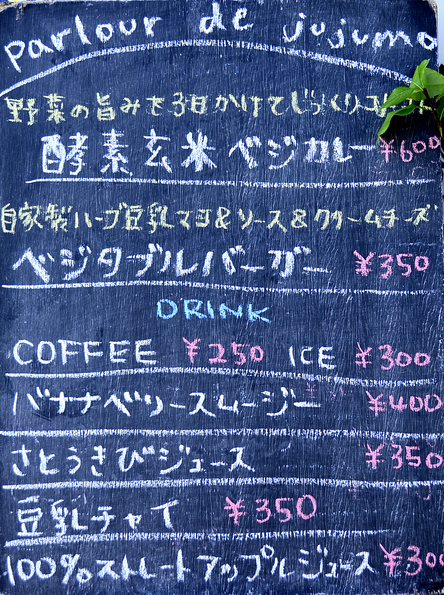 parlour de jujumo
野菜の旨みを3日かけてじっくりコトコト
酵素玄米ベジカレー ¥600
自家製ハーブ豆乳マヨ&ソース&クリームチーズ
ベジタブルバーガー ¥350
DRINK
COFFEE ¥250 ICE ¥300
バナナベリースムージー ¥400
さとうきびジュース ¥350
豆乳チャイ ¥350
100%ストレートアップルジュース ¥300